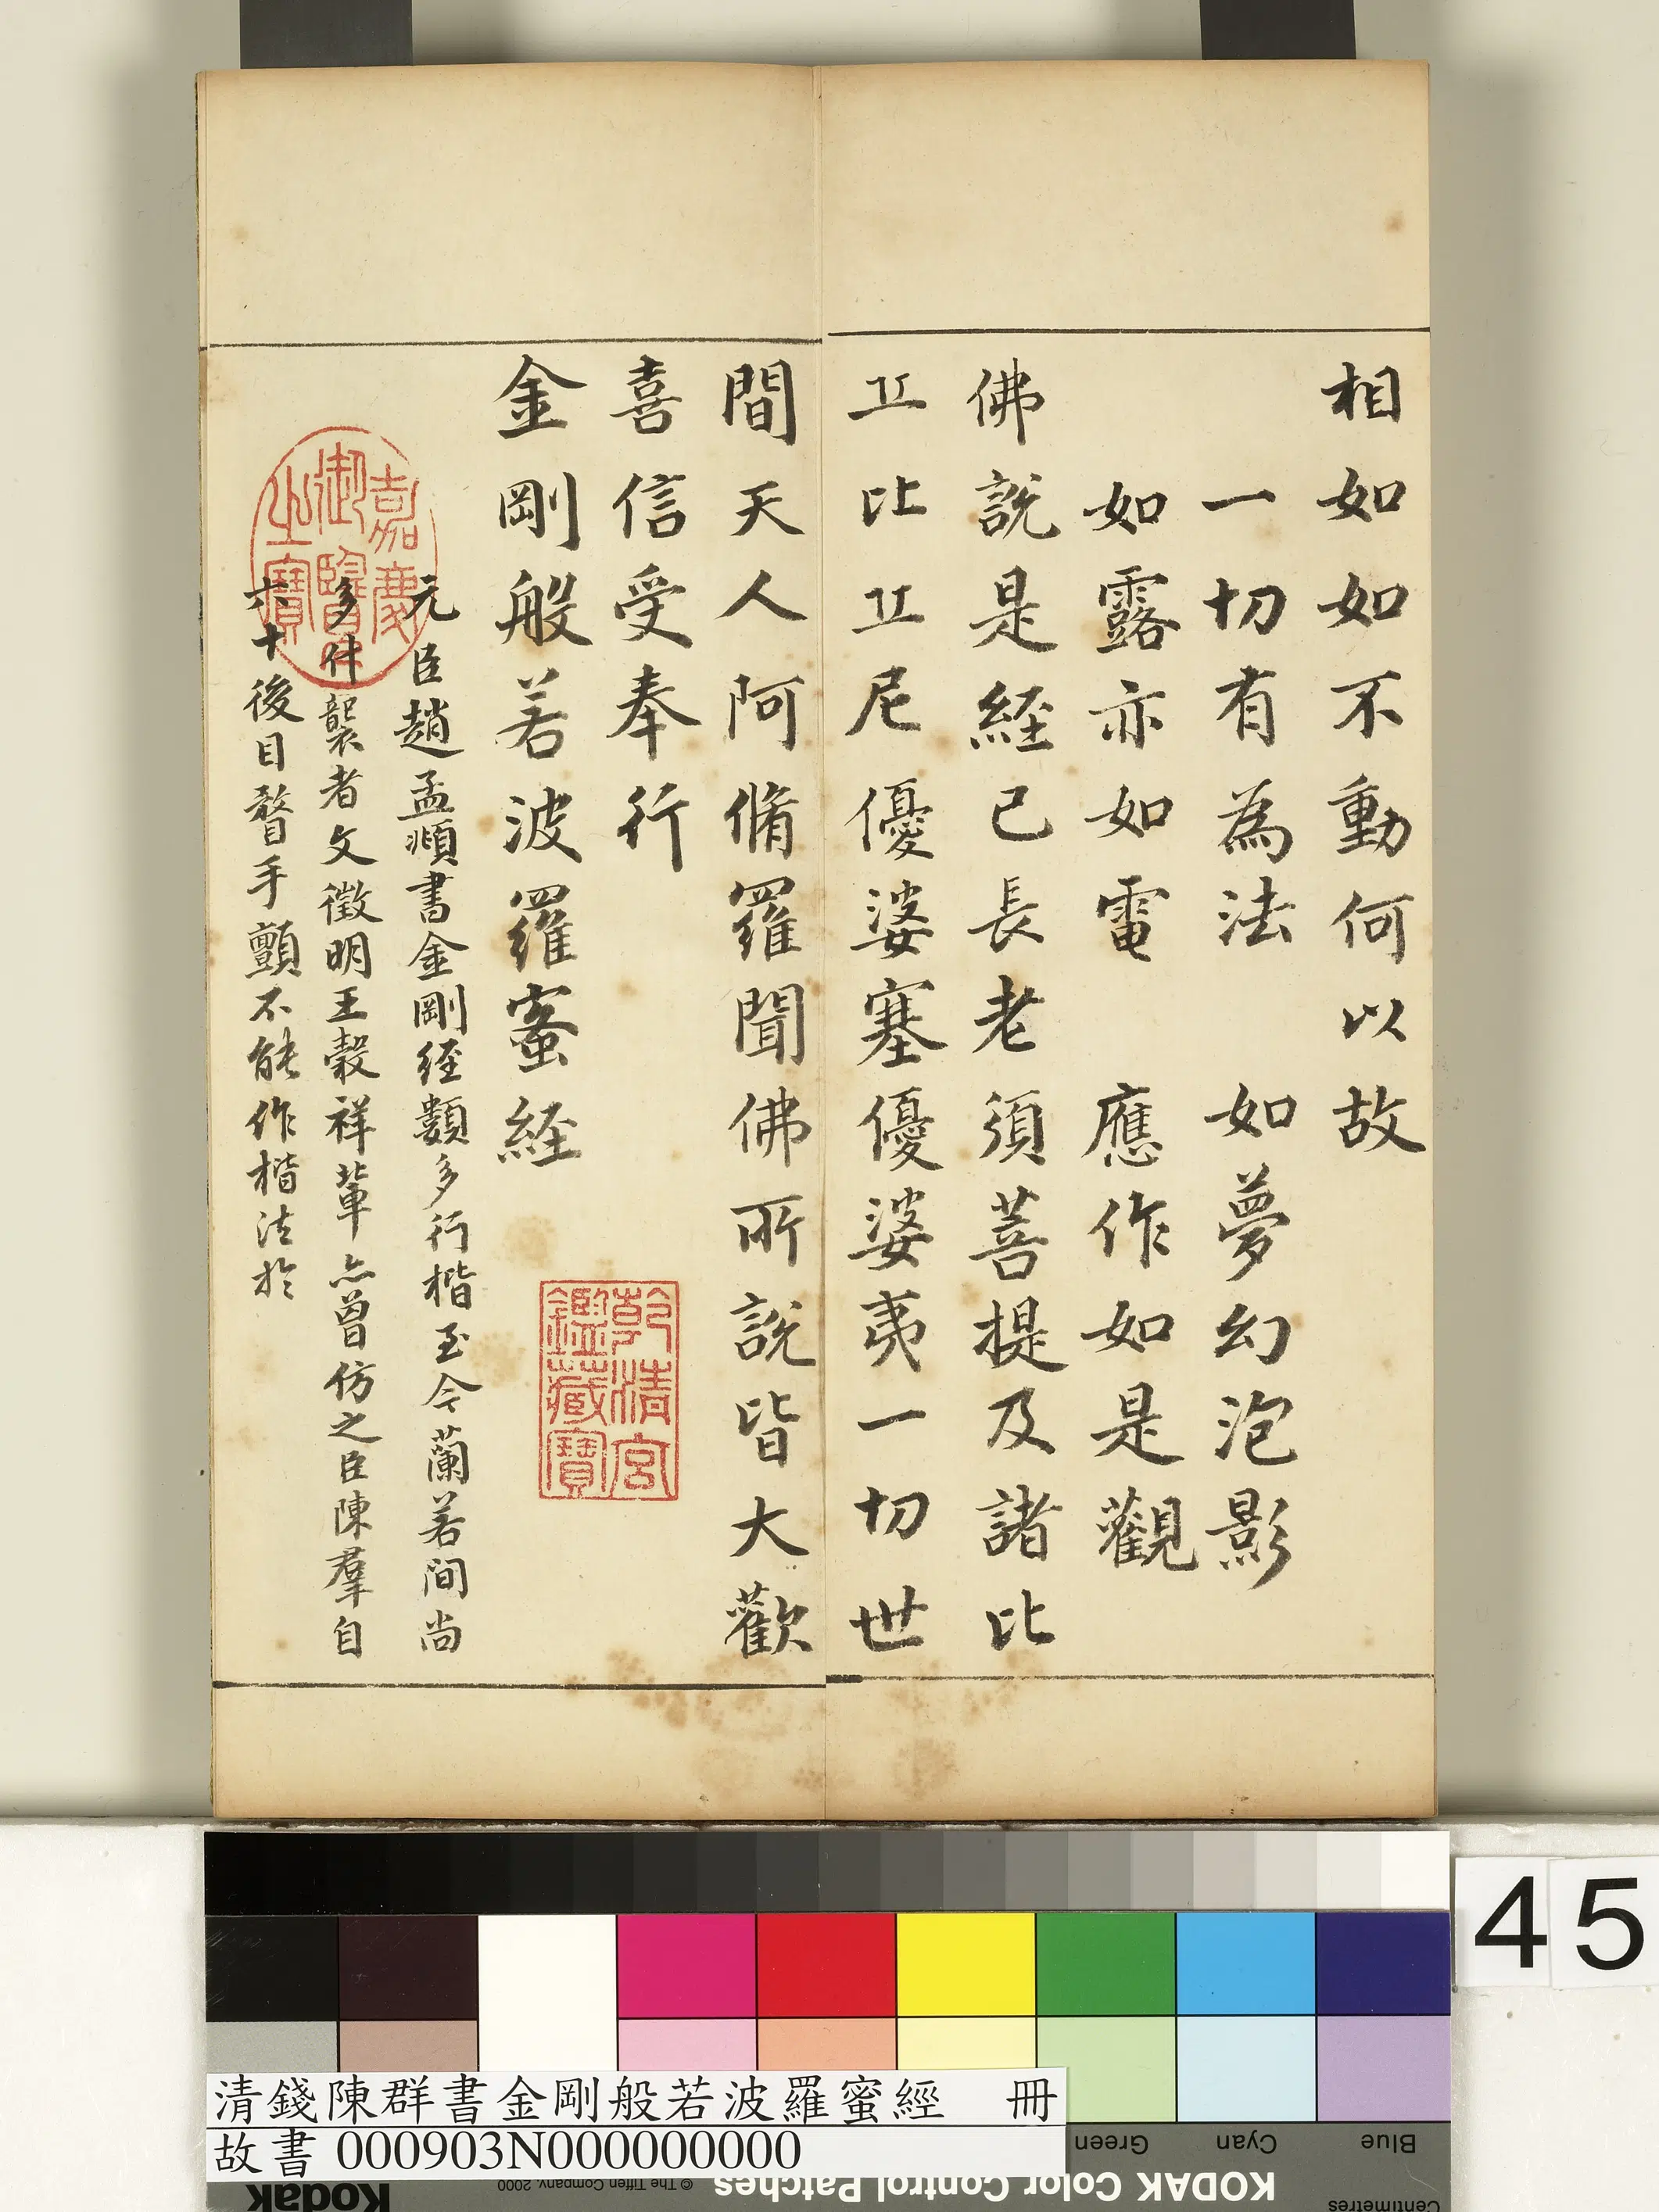 相如如不動何以故
一切有為法　如夢幻泡影
如露亦如電　應作如是觀
佛說是経已長老須菩提及諸比
丘比丘尼優婆塞優婆夷一切世
間天人阿脩羅聞佛所說皆大歡
喜信受奉行
金剛般若波羅蜜経
元臣趙孟頫書金剛経類多行楷至今蘭若間尚
多什襲者文徵明王穀祥軰亦曾仿之臣陳羣自
六十後目瞀手顫不能作楷法於
嘉慶御覽之寶
乾清宮鑑藏寶
45
清錢陳群書金剛般若波羅蜜經　冊
故書 000903N000000000
Blue
Cyan
Green
KODAK Color Control Patches
© The Tiffen Company, 2000
Kodak
Centimetres